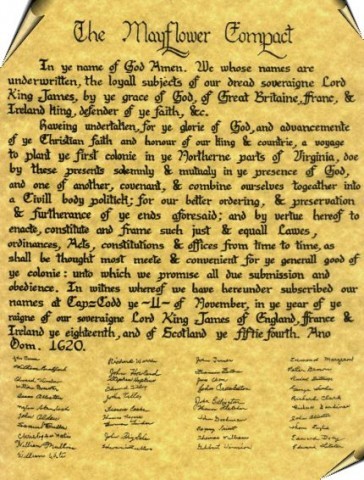 The Mayflower Compact
In ye name of God Amen. We whose names are
underwritten, the loyall subjects of our dread soveraigne Lord
King James, by ye grace of God, of Great Britaine, Franc, &
Ireland king, defender of ye faith, &c.
Haveing undertaken, for ye glorie of God, and advancemente
of ye Christian faith and honour of our king & countrie, a voyage
to plant ye first colonie in ye Northerne parts of Virginia, doe
by these presents solemnly & mutualy in ye presence of God,
and one of another, covenant, & combine ourselves togeather into
a Civill body politick; for our better ordering, & preservation
& furtherance of ye ends aforesaid; and by vertue hereof to
enacte, constitute and frame such just & equall Lawes,
ordinances, Acts, constitutions & offices from time to time, as
shall be thought most meete & convenient for ye generall good of
ye colonie: unto which we promise all due submission and
obedience. In witnes wherof we have hereunder subscribed our
names at Cap=Codd ye ~11~ of November, in ye year of ye
raigne of our soveraigne Lord King James of England, France &
Ireland ye eighteenth, and of Scotland ye fiftie fourth. Ano
Dom. 1620.
John Howland
John Tilley
John Alden
William Mullins
William White
Thomas Williams
Peter Brown
Richard Clark
John Allerton
Edward Doty